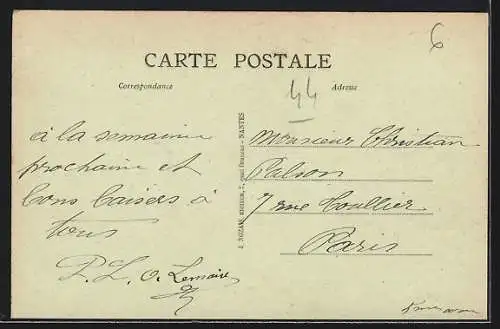 6
CARTE POSTALE
Correspondance
44
Adresse
à la semaine
prochaine et
bons baisers à
tous
P. L. O. Lemaire
J. NOZAIS, EDITEUR, 7, quai Fosse - NANTES
Monsieur Christian
Palson
7 rue Coullier
Paris